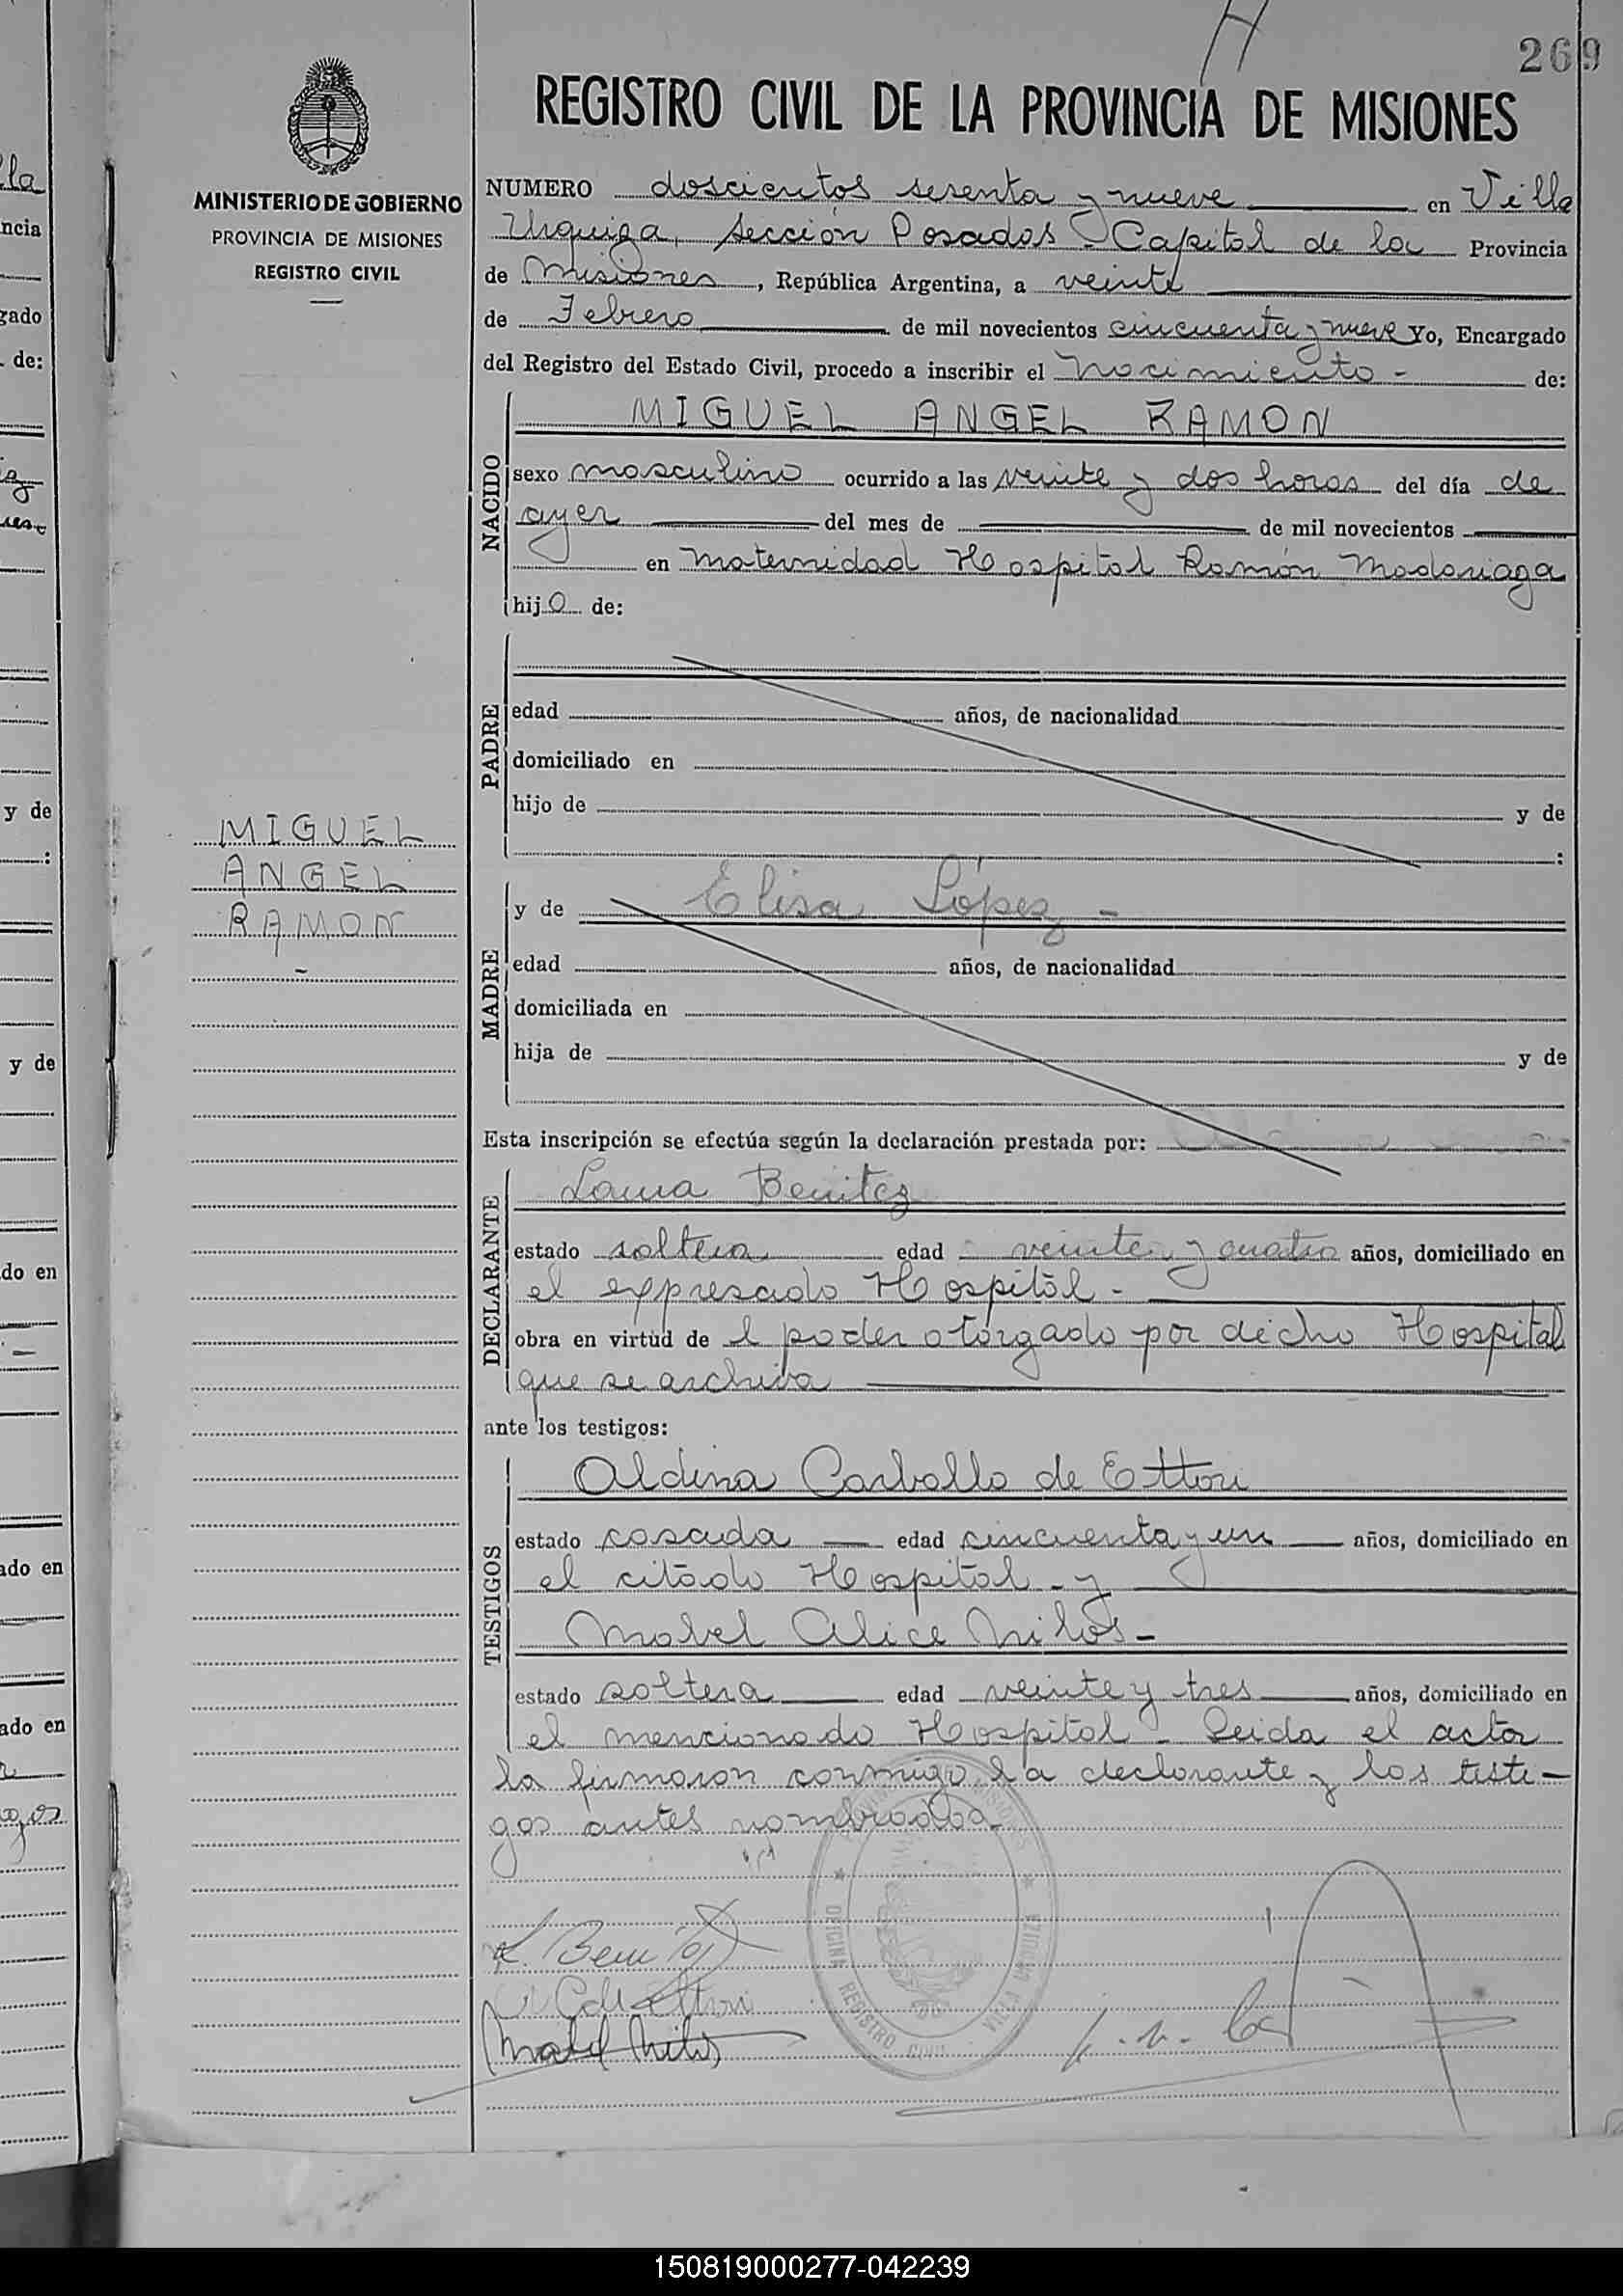 269
REGISTRO CIVIL DE LA PROVINCIA DE MISIONES
MINISTERIO DE GOBIERNO
PROVINCIA DE MISIONES
REGISTRO CIVIL
NUMERO doscientos sesenta y nueve en Villa
Urquiza, Sección Posadas - Capital de la Provincia
de Misiones, República Argentina, a veinte
de Febrero de mil novecientos cincuenta y nueve Yo, Encargado
del Registro del Estado Civil, procedo a inscribir el Nacimiento - de:
NACIDO
MIGUEL ANGEL RAMON
sexo masculino ocurrido a las veinte y dos horas del día de
ayer del mes de de mil novecientos
en Maternidad Hospital Ramón Madariaga
hijo de:
PADRE
edad años, de nacionalidad
domiciliado en
hijo de y de
:
MIGUEL
ANGEL
RAMON
-
MADRE
y de Elisa López -
edad años, de nacionalidad
domiciliada en
hija de y de
Esta inscripción se efectúa según la declaración prestada por:
DECLARANTE
Laura Benitez
estado soltera edad veinte y cuatro años, domiciliado en
el expresado Hospital -
obra en virtud de l poder otorgado por dicho Hospital
que se archiva
ante los testigos:
TESTIGOS
Aldina Carballo de Ettori
estado casada edad cincuenta y un años, domiciliado en
el citado Hospital - y
Mabel Alice Milos -
estado soltera edad veinte y tres años, domiciliado en
el mencionado Hospital - Leida el acta
la firmaron conmigo la declarante y los testi-
gos antes nombrados -
L. Benitez
Mabel Milos
OFICINA REGISTRO CIVIL VILLA URQUIZA
la
ncia
gado
de:
y de
:
y de
do en
ado en
ado en
150819000277-042239